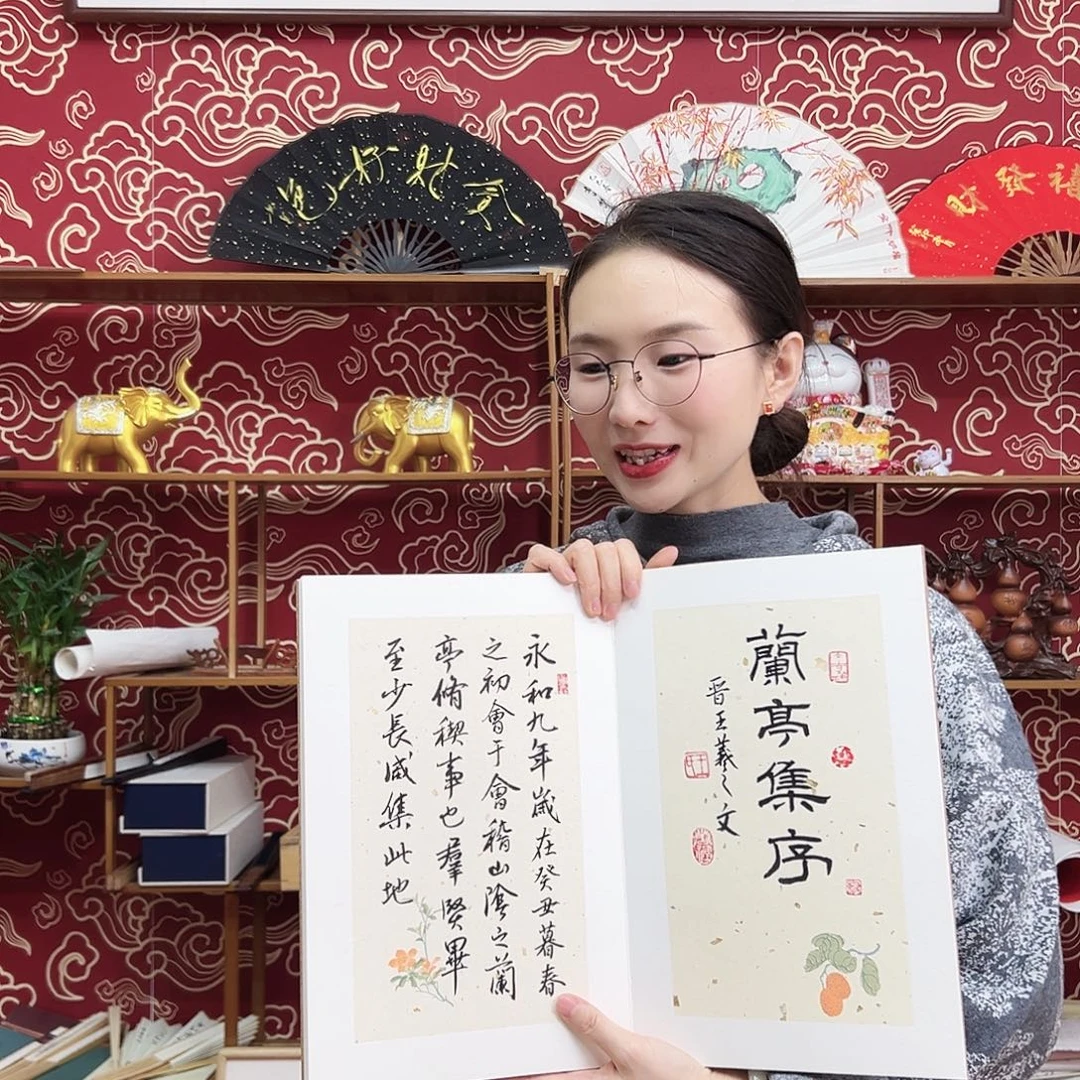 贪财好色
禧發財
蘭亭集序
晋王羲之文
永和九年歲在癸丑暮春
之初會于會稽山陰之蘭
亭脩禊事也羣賢畢
至少長咸集此地